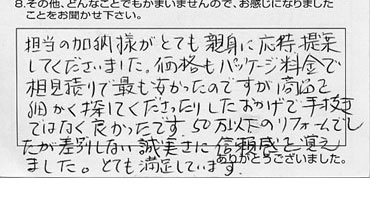 8.その他、どんなことでもかまいませんので、お感じになりました
ことをお聞かせ下さい。
担当の加納様がとても親身に応待、提案
してくださいました。価格もパッケージ料金で
相見積りで最も安かったのですが商品を
細かく探してくださったりしたおかげで手抜き
ではなく良かったです。50万以下のリフォームでし
たが差別しない誠実さに信頼感を覚え
ました。とても満足しています。
ありがとうございました。